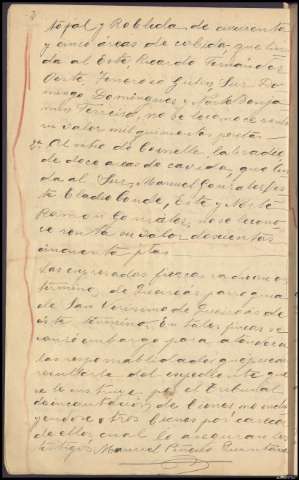 tojal y Robleda de cuarenta
y cinco áreas de cabida que lin
da al Este, Ricardo Fernández
Oeste Generoso Sur Do
mingo Domínguez y Norte Benja
mín Ferreiro, no se le conoce renta
su valor mil quinientas pesetas
Otro labradío
de doce áreas de cavida, que lin
da al Sur, Manuel González Oes
te Eladio Conde, Este y Norte
Ramón González, no se le cono
ce renta su valor doscientas
cincuenta ptas.
Las expresadas fincas radican en
término de parroquia
de San Verísimo de
éste término. En tales fincas se
causó embargo para
las responsabilidades que puedan
resultarle del expediente que
se le instruye por el Tribunal
de incautación de bienes no embar
gándose otros bienes por carecer
de ellos cual lo aseguran los
testigos Manuel